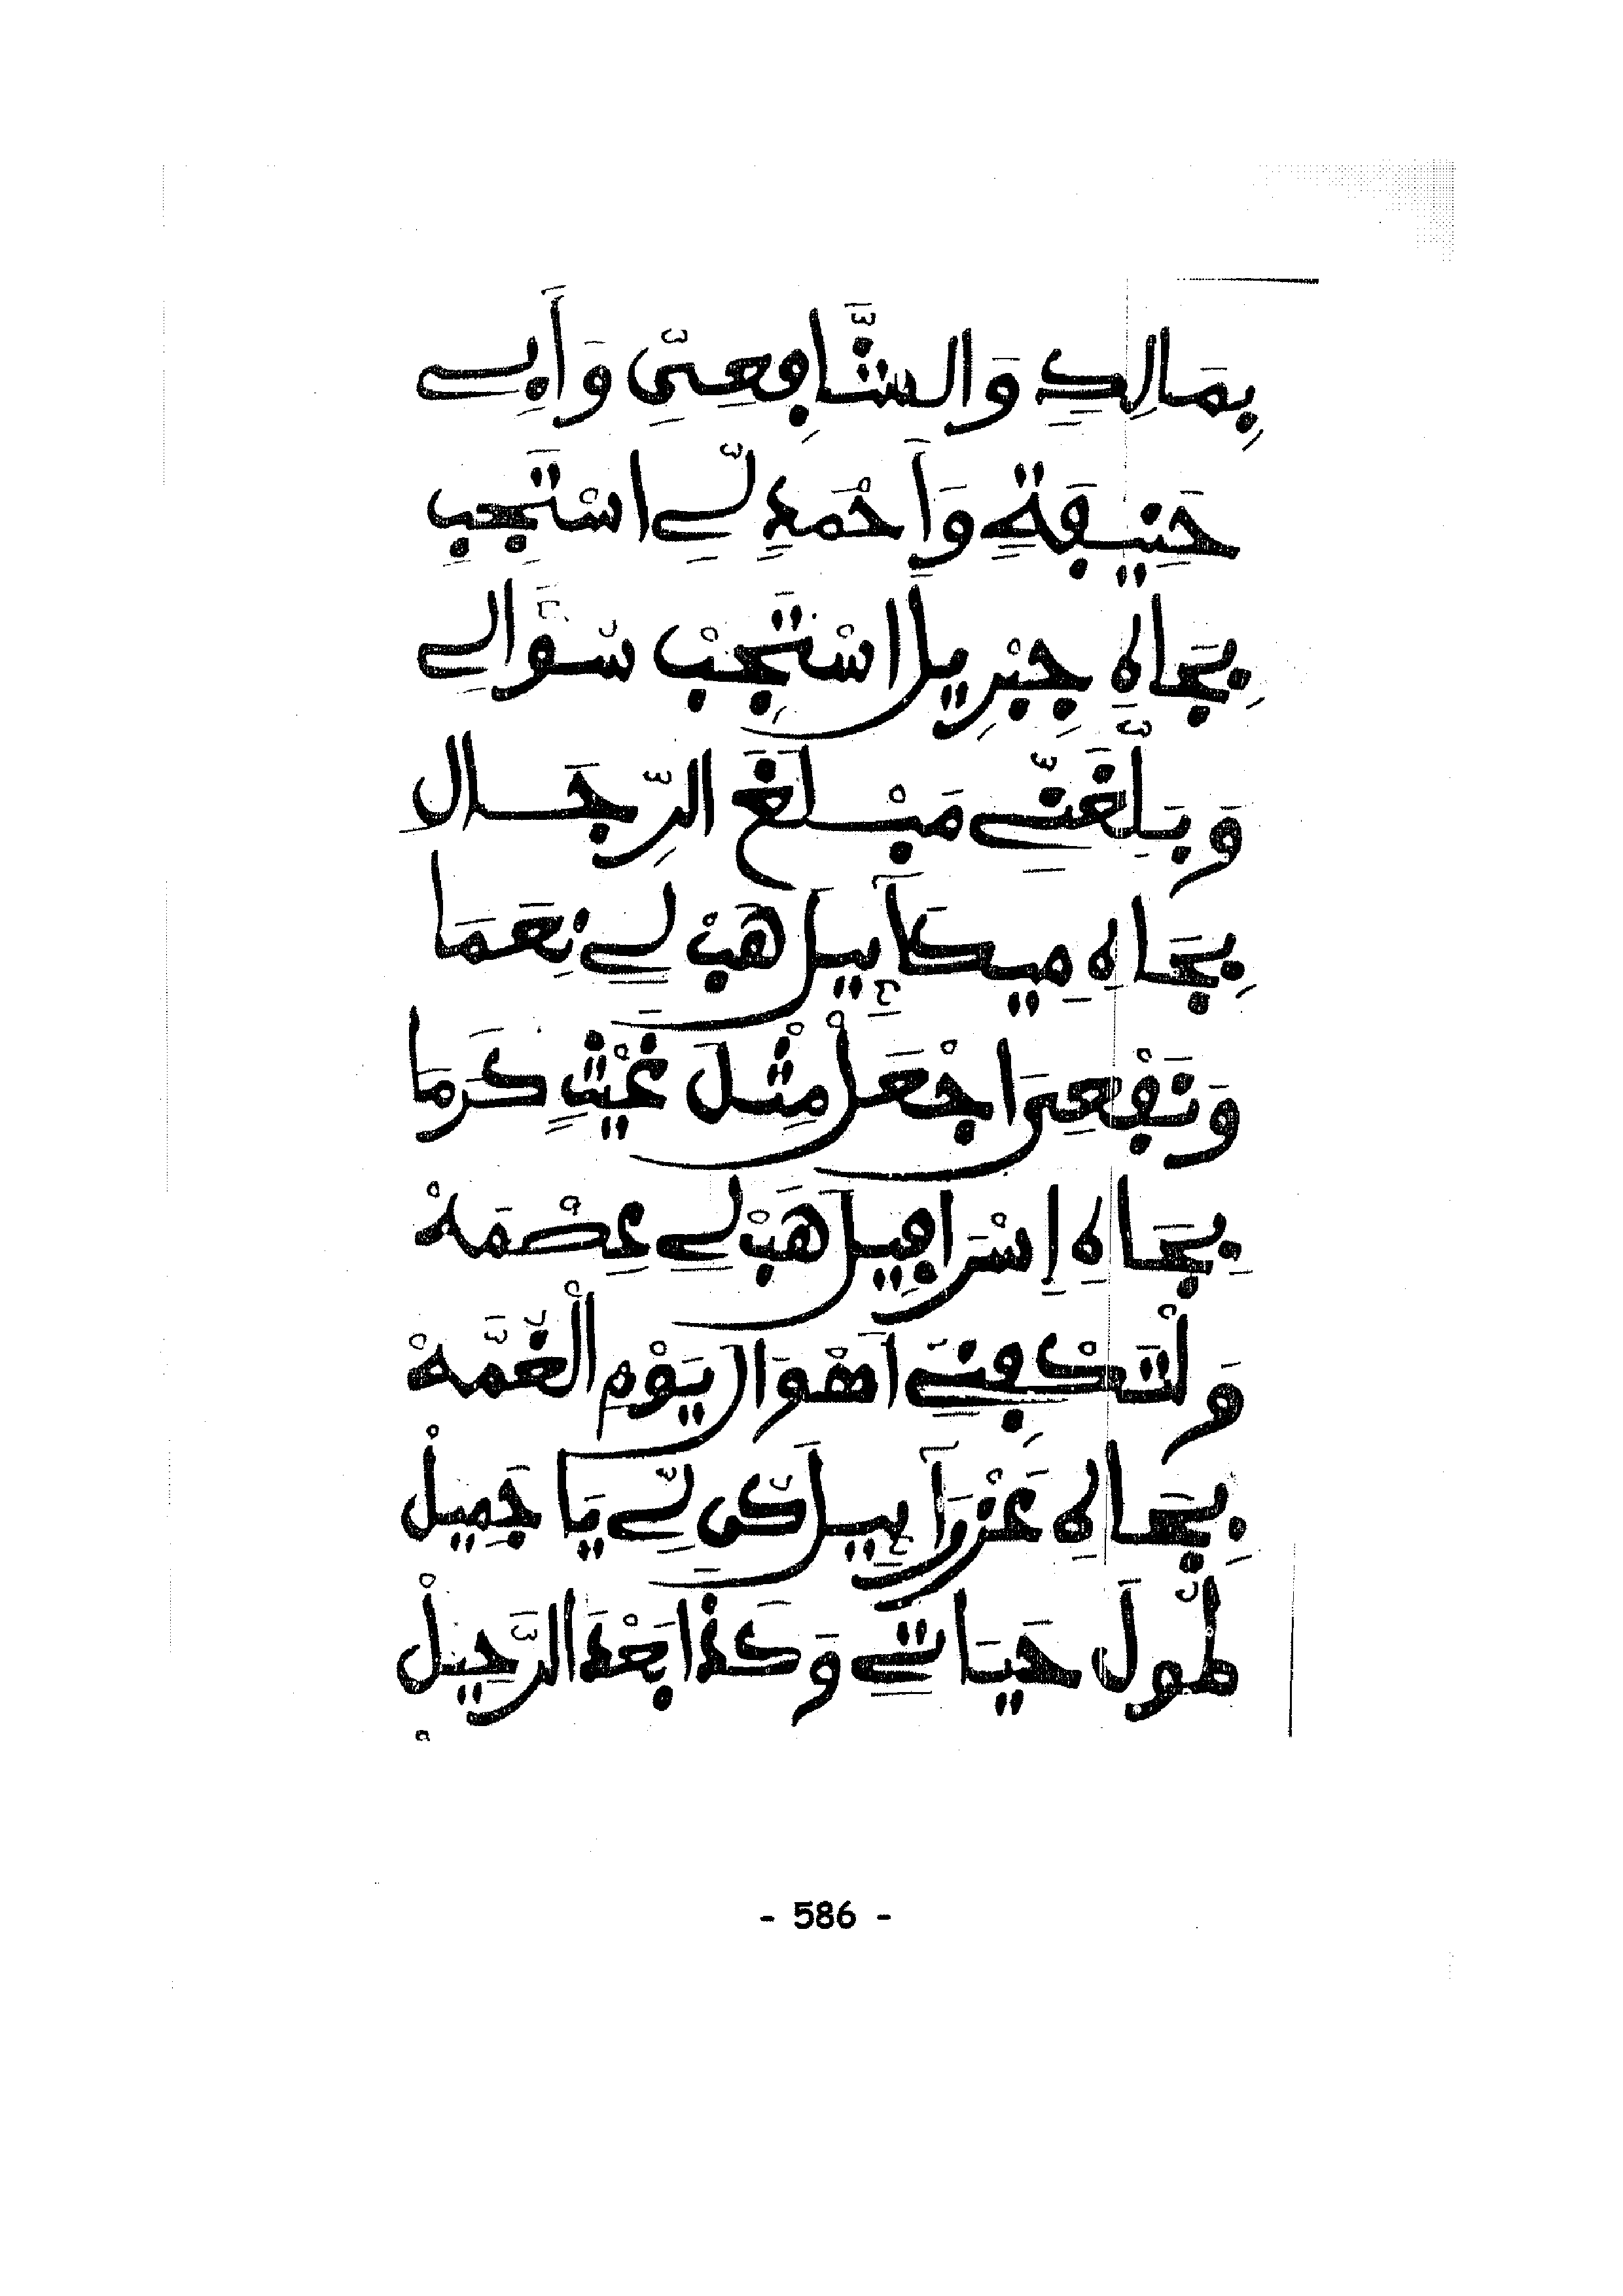 بِمَالِكِ وَالشَّافِعِىِّ وَأَبِے
حَنِيفَةٍ وَأَحْمَدٍ لِّے اسْتَجِبِ
بِجَاهِ جِبْرِيلَ اسْتَجِبْ سُوَالِے
وَبَلِّغَنِّے مَبْلَغَ الرِّجَالِ
بِجَاهِ مِيكَآئِيلَ هَبْ لِے نِعَمَا
وَنَفْعِىَ اجْعَلْ مِثْلَ غَيْثٍ كَرَمَا
بِجَاهِ إِسْرَافِيلَ هَبْ لِے عِصْمَهْ
وَلْتَكْفِنِے أَهْوَالَ يَوْمِ الْغُمَّهْ
بِجَاهِ عَزْرَآئِيلَ كُن لِّے يَا جَمِيلْ
طُولَ حَيَاتِے وَكَذَا بَعْدَ الرَّحِيلْ
- 586 -